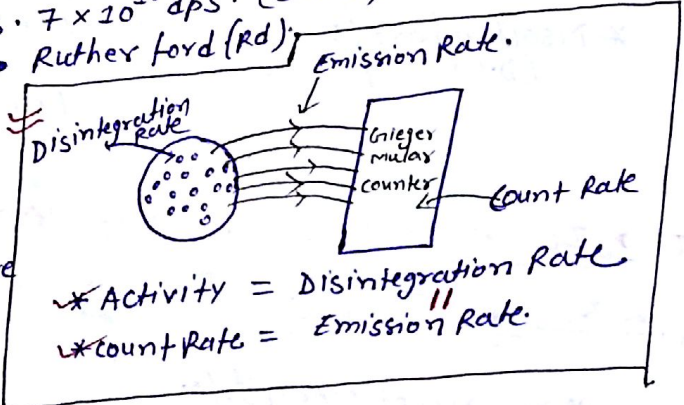 . 7 × 10 dps.
Ruther ford (Rd).
Emission Rate.
Disintegration
Rate
Gieger
mular
counter
Count Rate
* Activity = Disintegration Rate
||
* count Rate = Emission Rate.